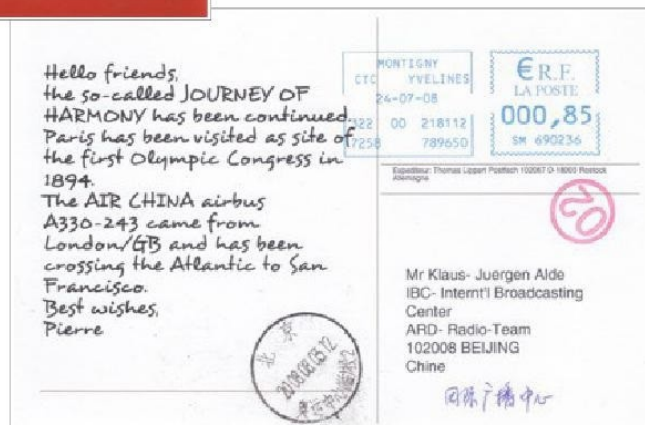 Hello friends,
the so-called JOURNEY OF
HARMONY has been continued.
Paris has been visited as site of
the first Olympic Congress in
1894.
The AIR CHINA airbus
A330-243 came from
London/GB and has been
crossing the Atlantic to San
Francisco.
Best wishes,
Pierre
MONTIGNY
CTC YVELINES
24-07-08
322 00 218112
7258 789650
€ R.F.
LA POSTE
000,85
SM 690236
Expediteur: Thomas Lippert Postfach 102067 D-18003 Rostock
Allemagne
02
Mr Klaus- Juergen Alde
IBC- Internt'l Broadcasting
Center
ARD- Radio-Team
102008 BEIJING
Chine
国际广播中心
北京
2008.08.03.12